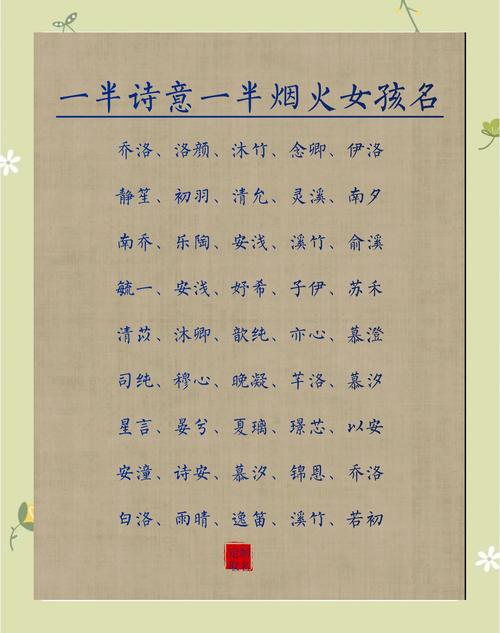 一半诗意一半烟火女孩名
乔洛、洛颜、沐竹、念卿、伊洛
静笙、初羽、清允、灵溪、南夕
南乔、乐陶、安浅、溪竹、俞溪
毓一、安浅、妤希、子伊、苏禾
清苡、沐卿、歆纯、亦心、慕澄
司纯、穆心、晚凝、芊洛、慕汐
星言、晏兮、夏璃、璟芯、以安
安潼、诗安、慕汐、锦恩、乔洛
白洛、雨晴、逸笛、溪竹、若初
定制
取名